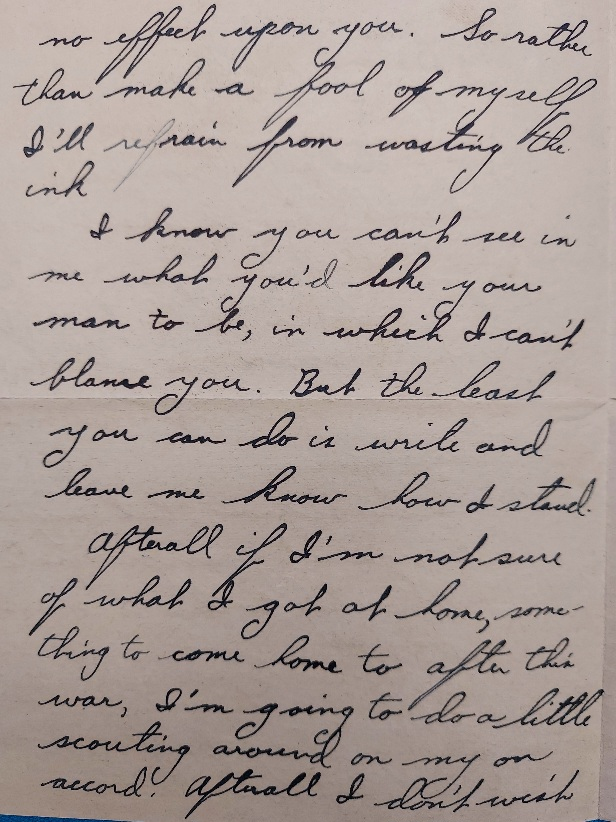 no effect upon you. So rather
than make a fool of myself
I'll refrain from wasting the
ink
I know you can't see in
me what you'd like your
man to be, in which I can't
blame you. But the least
you can do is write and
leave me know how I stand.
Afterall if I'm not sure
of what I got at home, some-
thing to come home to after this
war, I'm going to do a little
scouting around on my on
accord. Afterall I don't wish